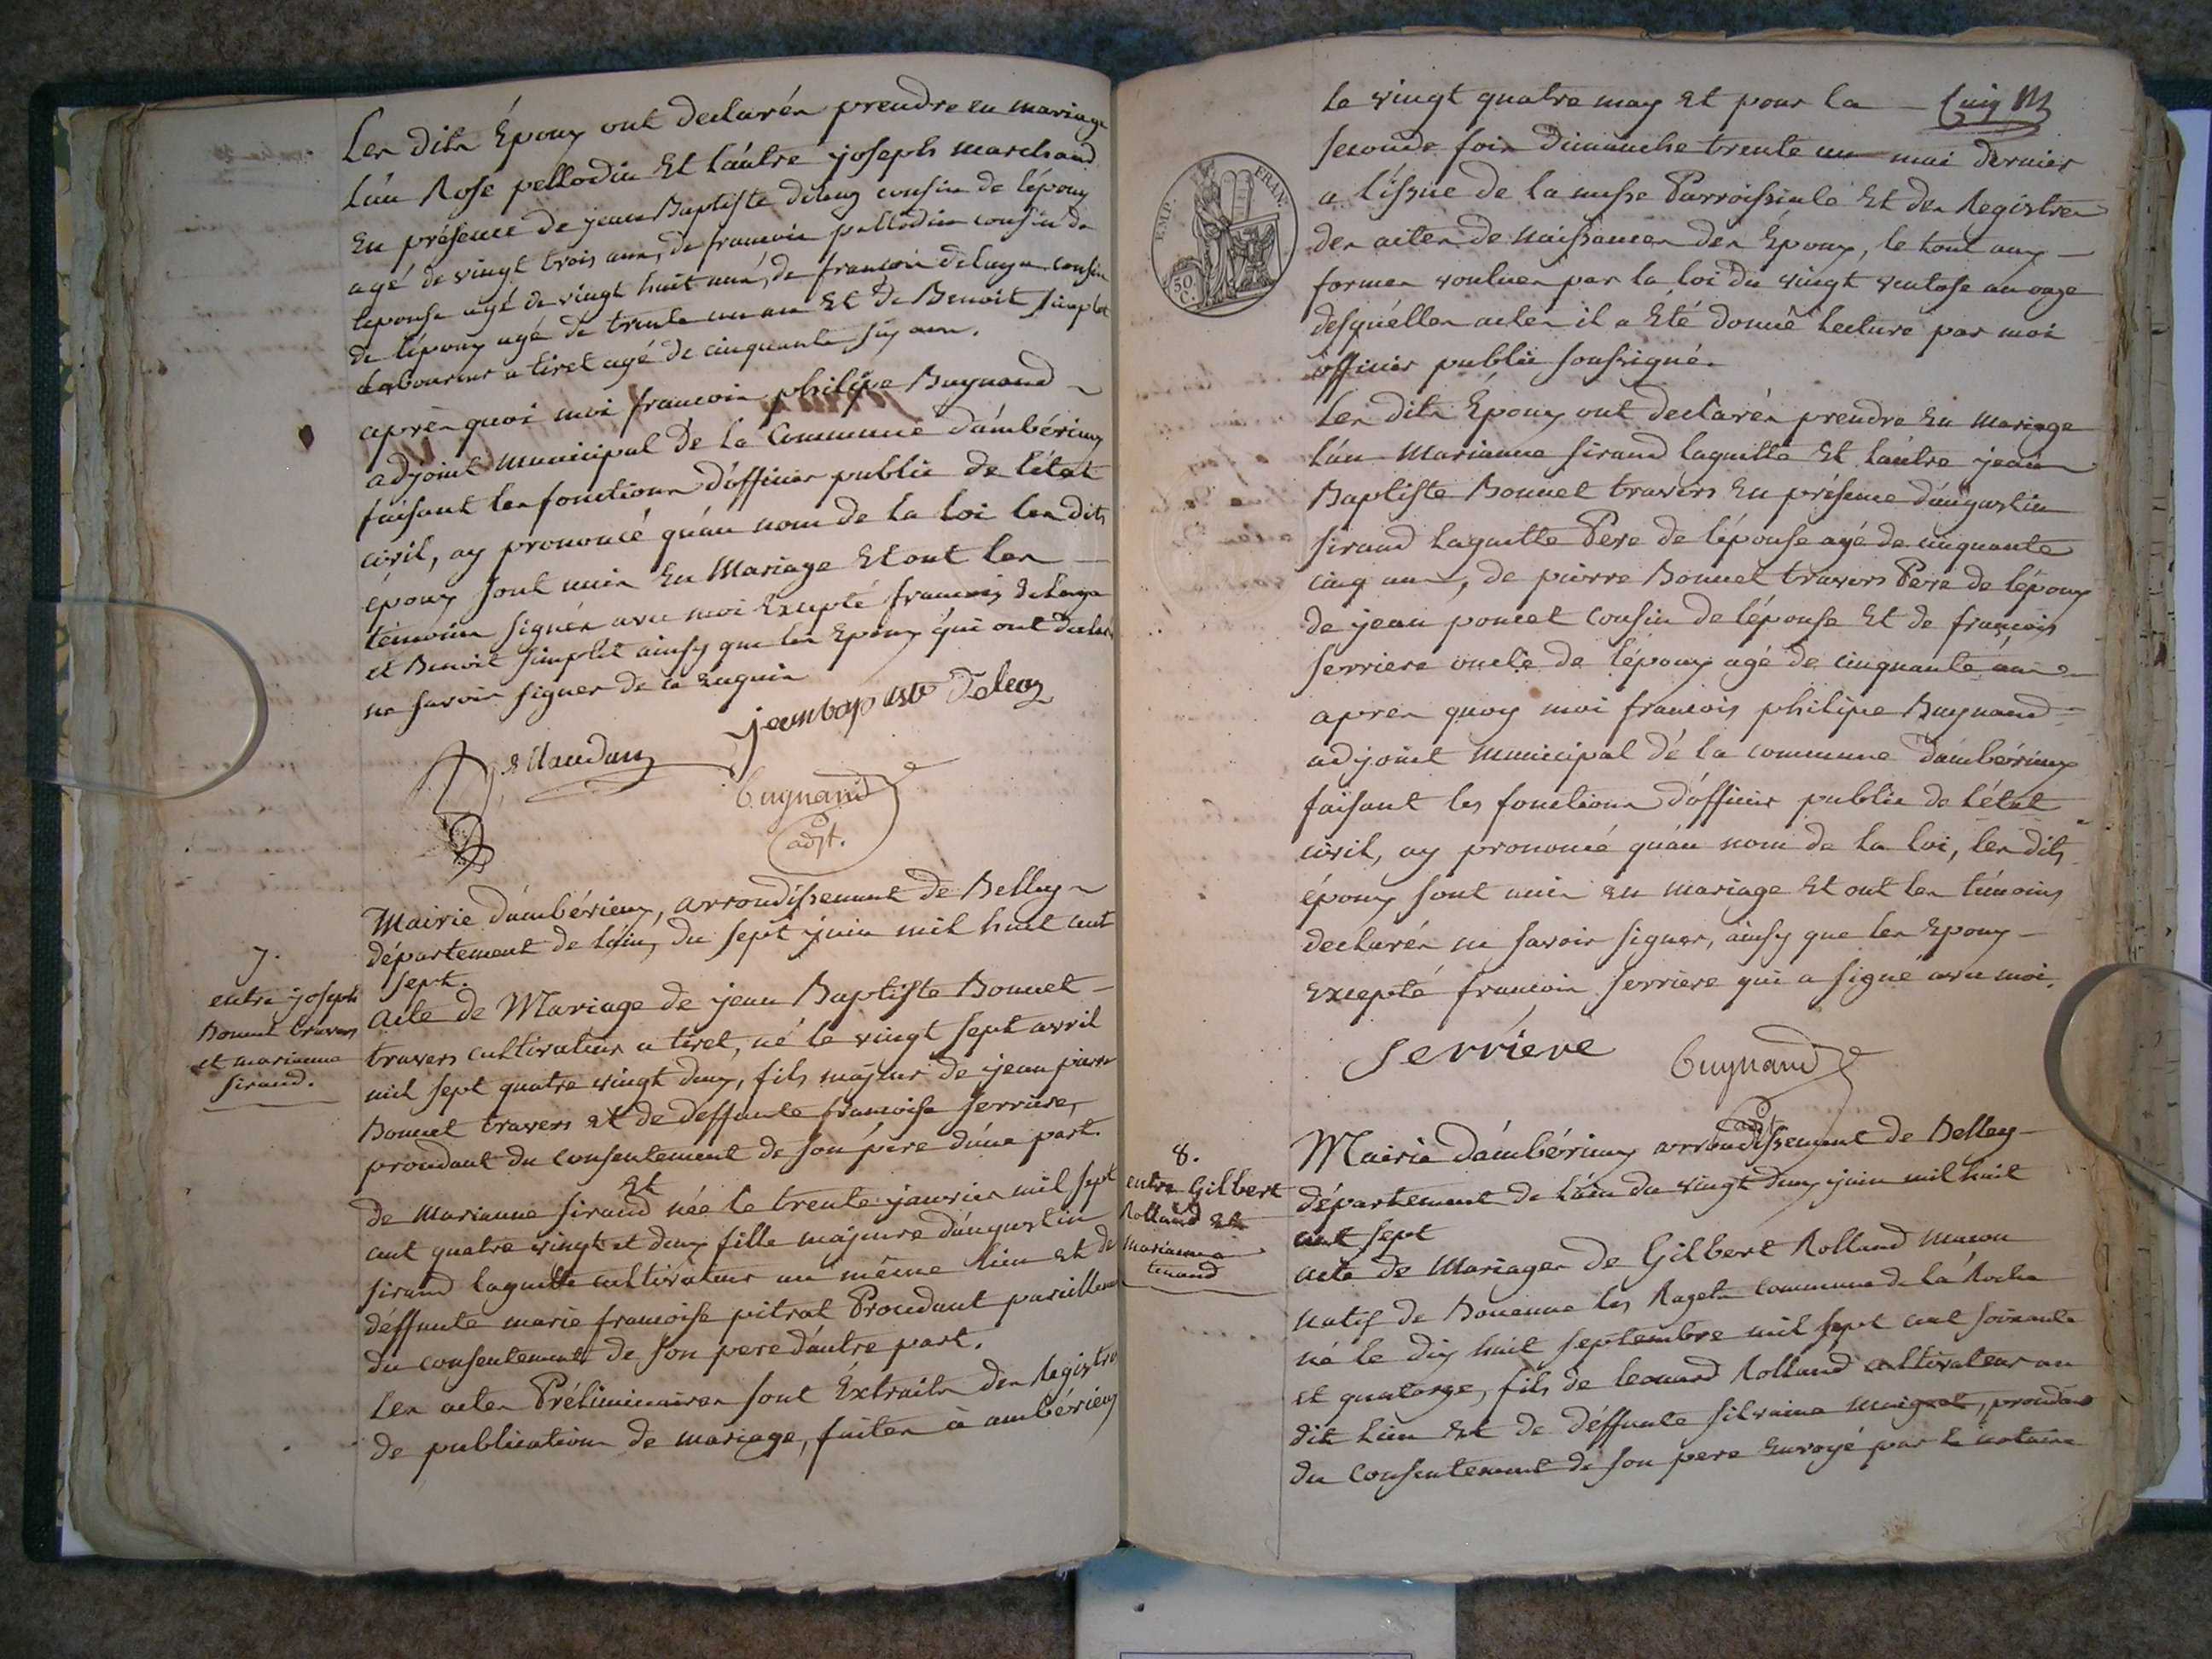 Les dits Époux ont déclarés prendre en mariage
L'un Rose pellodin Et L'autre joseph marchand
En présence de jean Baptiste deleaz cousin de l'époux
agé de vingt trois ans, de francois pellodin cousin de
l'épouse agé de vingt huit ans, de francois delaya cousin
de l'époux agé de trente un an Et de Benoit simplet
Laboureur a tiret agé de cinquante six ans.
après quoi moi francois philipe Bugnand
adjoint Municipal de La Commune d'ambérieux
faisant les fonctions d'officier public de l'état
civil, ay prononcé qu'au nom de la Loi les dits
époux sont unis En Mariage Et ont les
témoins signés avec moi Excepté francois delaya
et Benoit simplet ainsy que les Epoux qui ont déclaré
ne savoir signer de ce Enquis
jean baptiste Deleaz
Bugnand
adjt.
Mairie d'ambérieux, arrondissement de Belley
département de L'ain, du sept juin mil huit cent
sept.
7.
entre joseph
Bonnet travers
et marianne
siraud.
Acte de Mariage de jean Baptiste Bonnet
travers cultivateur a tiret, né le vingt sept avril
mil sept quatre vingt deux, fils majeur de jean pierre
Bonnet travers Et de deffunte francoise serriere,
procédant du consentement de son père d'une part.
Et
de marianne siraud née le trente janvier mil sept
cent quatre vingt et deux fille majeure d'augustin
siraud laguette cultivateur au même lieu Et de
déffunte marie francoise pitrat Procédant pareillement
du consentement de son pere d'autre part.
Les actes Préliminaires sont Extraits des Registres
de publications de mariage, faites à ambérieux
le vingt quatre may Et pour la
seconde fois dimanche trente un mai dernier
a l'issue de la messe Parroissiale Et des Registres
des actes de naissances des Époux, le tout aux
formes voulues par la loi du vingt ventose an onze
desquelles actes il a Été donné Lecture par moi
officier public soussigné.
EMP. FRAN.
50 C.
Les dits Époux ont déclarés prendre En Mariage
L'un Marianne siraud laguette Et L'autre jean
Baptiste Bonnet travers En présence d'augustin
siraud Laguette Pere de l'épouse agé de cinquante
cinq ans, de pierre Bonnet travers Pere de l'époux
de jean poncet cousin de l'épouse Et de françois
serriere oncle de l'époux agé de cinquante ans
apres quoy moi francois philipe Bugnand
adjoint Municipal de la commune d'ambérieux
faisant les fonctions d'officier public de l'état
civil, ay prononcé qu'au nom de la loi, les dits
époux sont unis en mariage Et ont les témoins
declarés ne savoir signer, ainsy que les Epoux
Excepté francois serriere qui a signé avec moi.
serriere Bugnand
adjt
Mairie d'ambérieux arrondissement de Belley
département de L'ain du vingt deux juin mil huit
cent sept
8.
entre Gilbert
Rolland et
marianne
tenand
acte de Mariage de Gilbert Rolland macon
natif de Bonenne les Ragets commune de la Roche
né le dix huit septembre mil sept cent soixante
et quatorze, fils de leonard Rolland cultivateur au
dit lieu Et de déffunte silvaine maignat, procédant
du Consentement de son pere Envoyé par le notaire